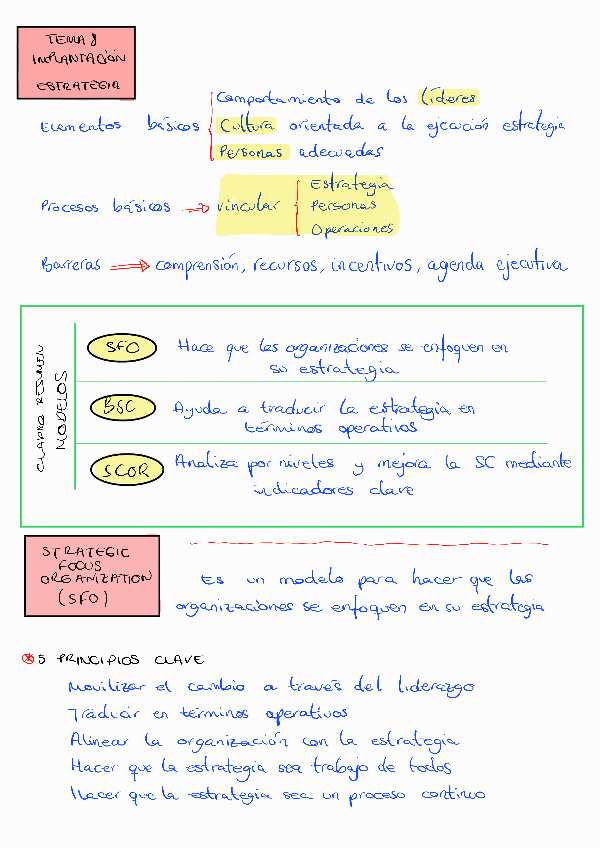 TEMA 8
IMPLANTACIÓN
ESTRATEGIA
Elementos básicos
Comportamiento de los líderes
Cultura orientada a la ejecución estrategia
Personas adecuadas
Procesos básicos → vincular
Estrategia
Personas
Operaciones
Barreras ⇒ comprensión, recursos, incentivos, agenda ejecutiva
CUADRO RESUMEN
MODELOS
SFO Hace que las organizaciones se enfoquen en
su estrategia
BSC Ayuda a traducir la estrategia en
términos operativos
SCOR Analiza por niveles y mejora la SC mediante
indicadores clave
STRATEGIC
FOCUS
ORGANIZATION
(SFO)
Es un modelo para hacer que las
organizaciones se enfoquen en su estrategia
5 PRINCIPIOS CLAVE
Movilizar el cambio a través del liderazgo
Traducir en términos operativos
Alinear la organización con la estrategia
Hacer que la estrategia sea trabajo de todos
Hacer que la estrategia sea un proceso continuo